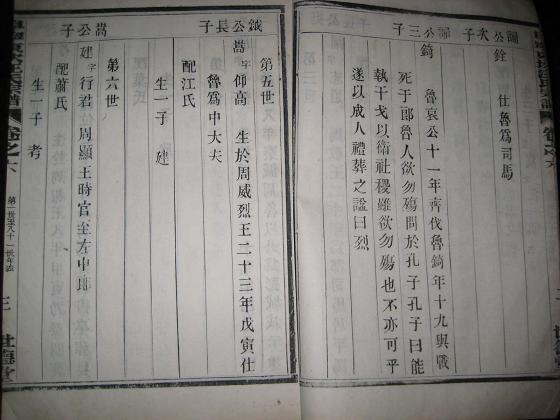 公次子
公銓 仕魯為司馬
公三子
公錡 魯哀公十一年齊伐魯錡年十九與戰
死于郎魯人欲勿殤問於孔子孔子曰能
執干戈以衛社稷雖欲勿殤也不亦可乎
遂以成人禮葬之謚曰烈
鉞公長子
第五世
嵩字仰高 生於周威烈王二十三年戊寅仕
魯為中大夫
配江氏
生一子 建
嵩公子
第六世
建字行君 周顯王時官至左中
配蕭氏
生一子 考
卷之六
三 世德堂